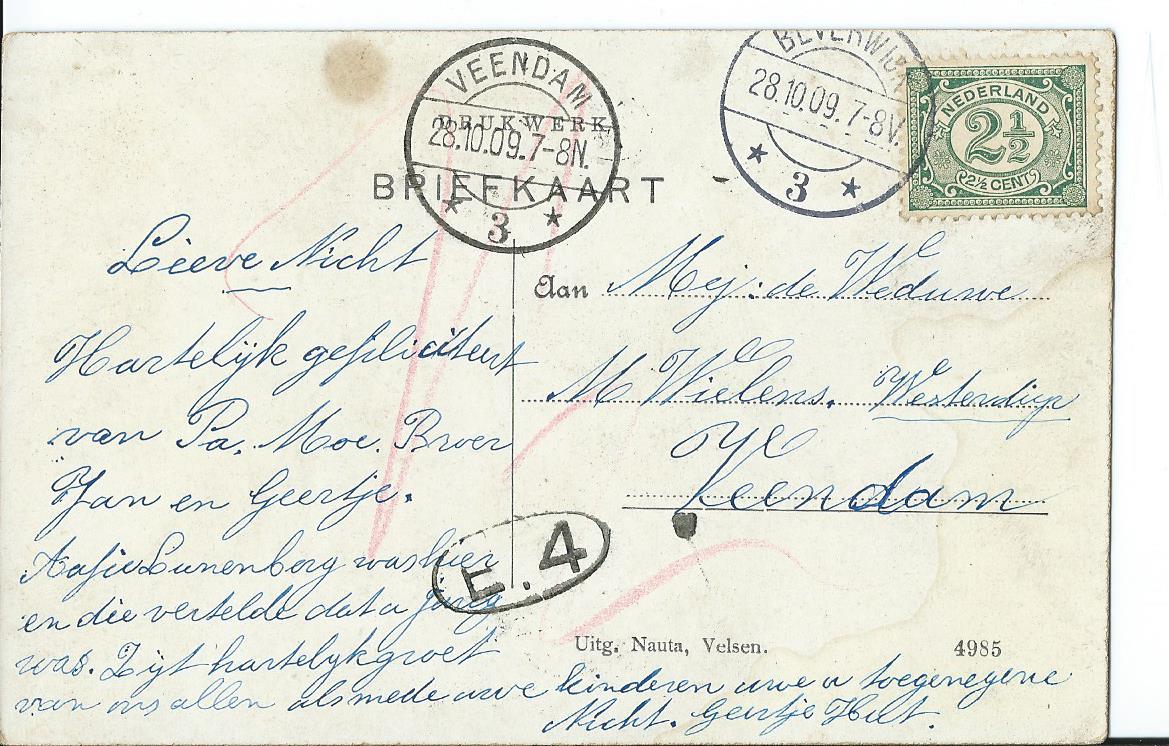 VEENDAM
28.10.09.7-8N.
3
DRUKWERK
BRIEFKAART
BEVERWIJK
28.10.09.7-8V.
3
NEDERLAND
2½
2½ CENT
Lieve Nicht
Hartelijk gefiliciteert
van Pa. Moe. Broer
Jan en Geertje.
Aafje Lunenborg was hier
en die vertelde dat u jarig
was. Zijt hartelyk groet
van ons allen alsmede uwe kinderen uwe u toegenegene
Nicht. Geertje Hut.
Aan Mej: de Weduwe
M Wielens. Westerdiep
Veendam
E.4
Uitg. Nauta, Velsen.
4985